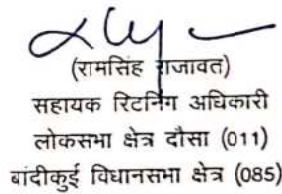 (रामसिंह राजावत)
सहायक रिटर्निंग अधिकारी
लोकसभा क्षेत्र दौसा (011)
बांदीकुई विधानसभा क्षेत्र (085)